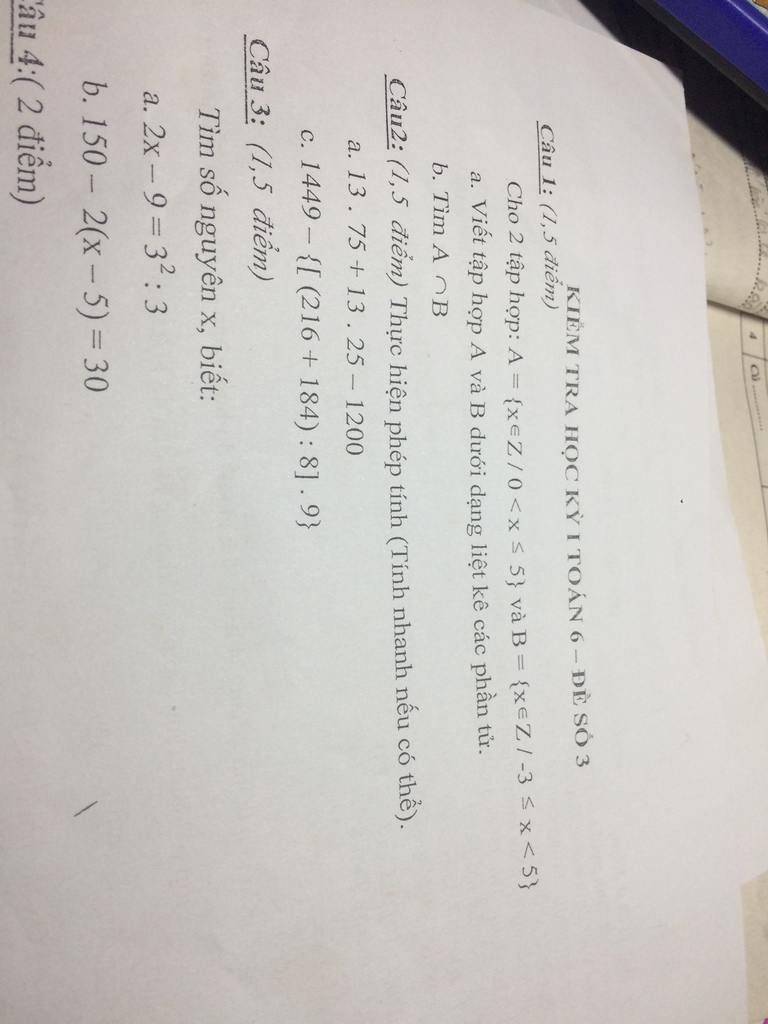 KIỂM TRA HỌC KỲ I TOÁN 6 – ĐỀ SỐ 3
Câu 1: (1,5 điểm)
Cho 2 tập hợp: A = {x∈Z / 0 < x ≤ 5} và B = {x∈Z / -3 ≤ x < 5}
a. Viết tập hợp A và B dưới dạng liệt kê các phần tử.
b. Tìm A ∩ B
Câu2: (1,5 điểm) Thực hiện phép tính (Tính nhanh nếu có thể).
a. 13 . 75 + 13 . 25 – 1200
c. 1449 – {[ (216 + 184) : 8] . 9}
Câu 3: (1,5 điểm)
Tìm số nguyên x, biết:
a. 2x – 9 = 3² : 3
b. 150 – 2(x – 5) = 30
Câu 4:( 2 điểm)